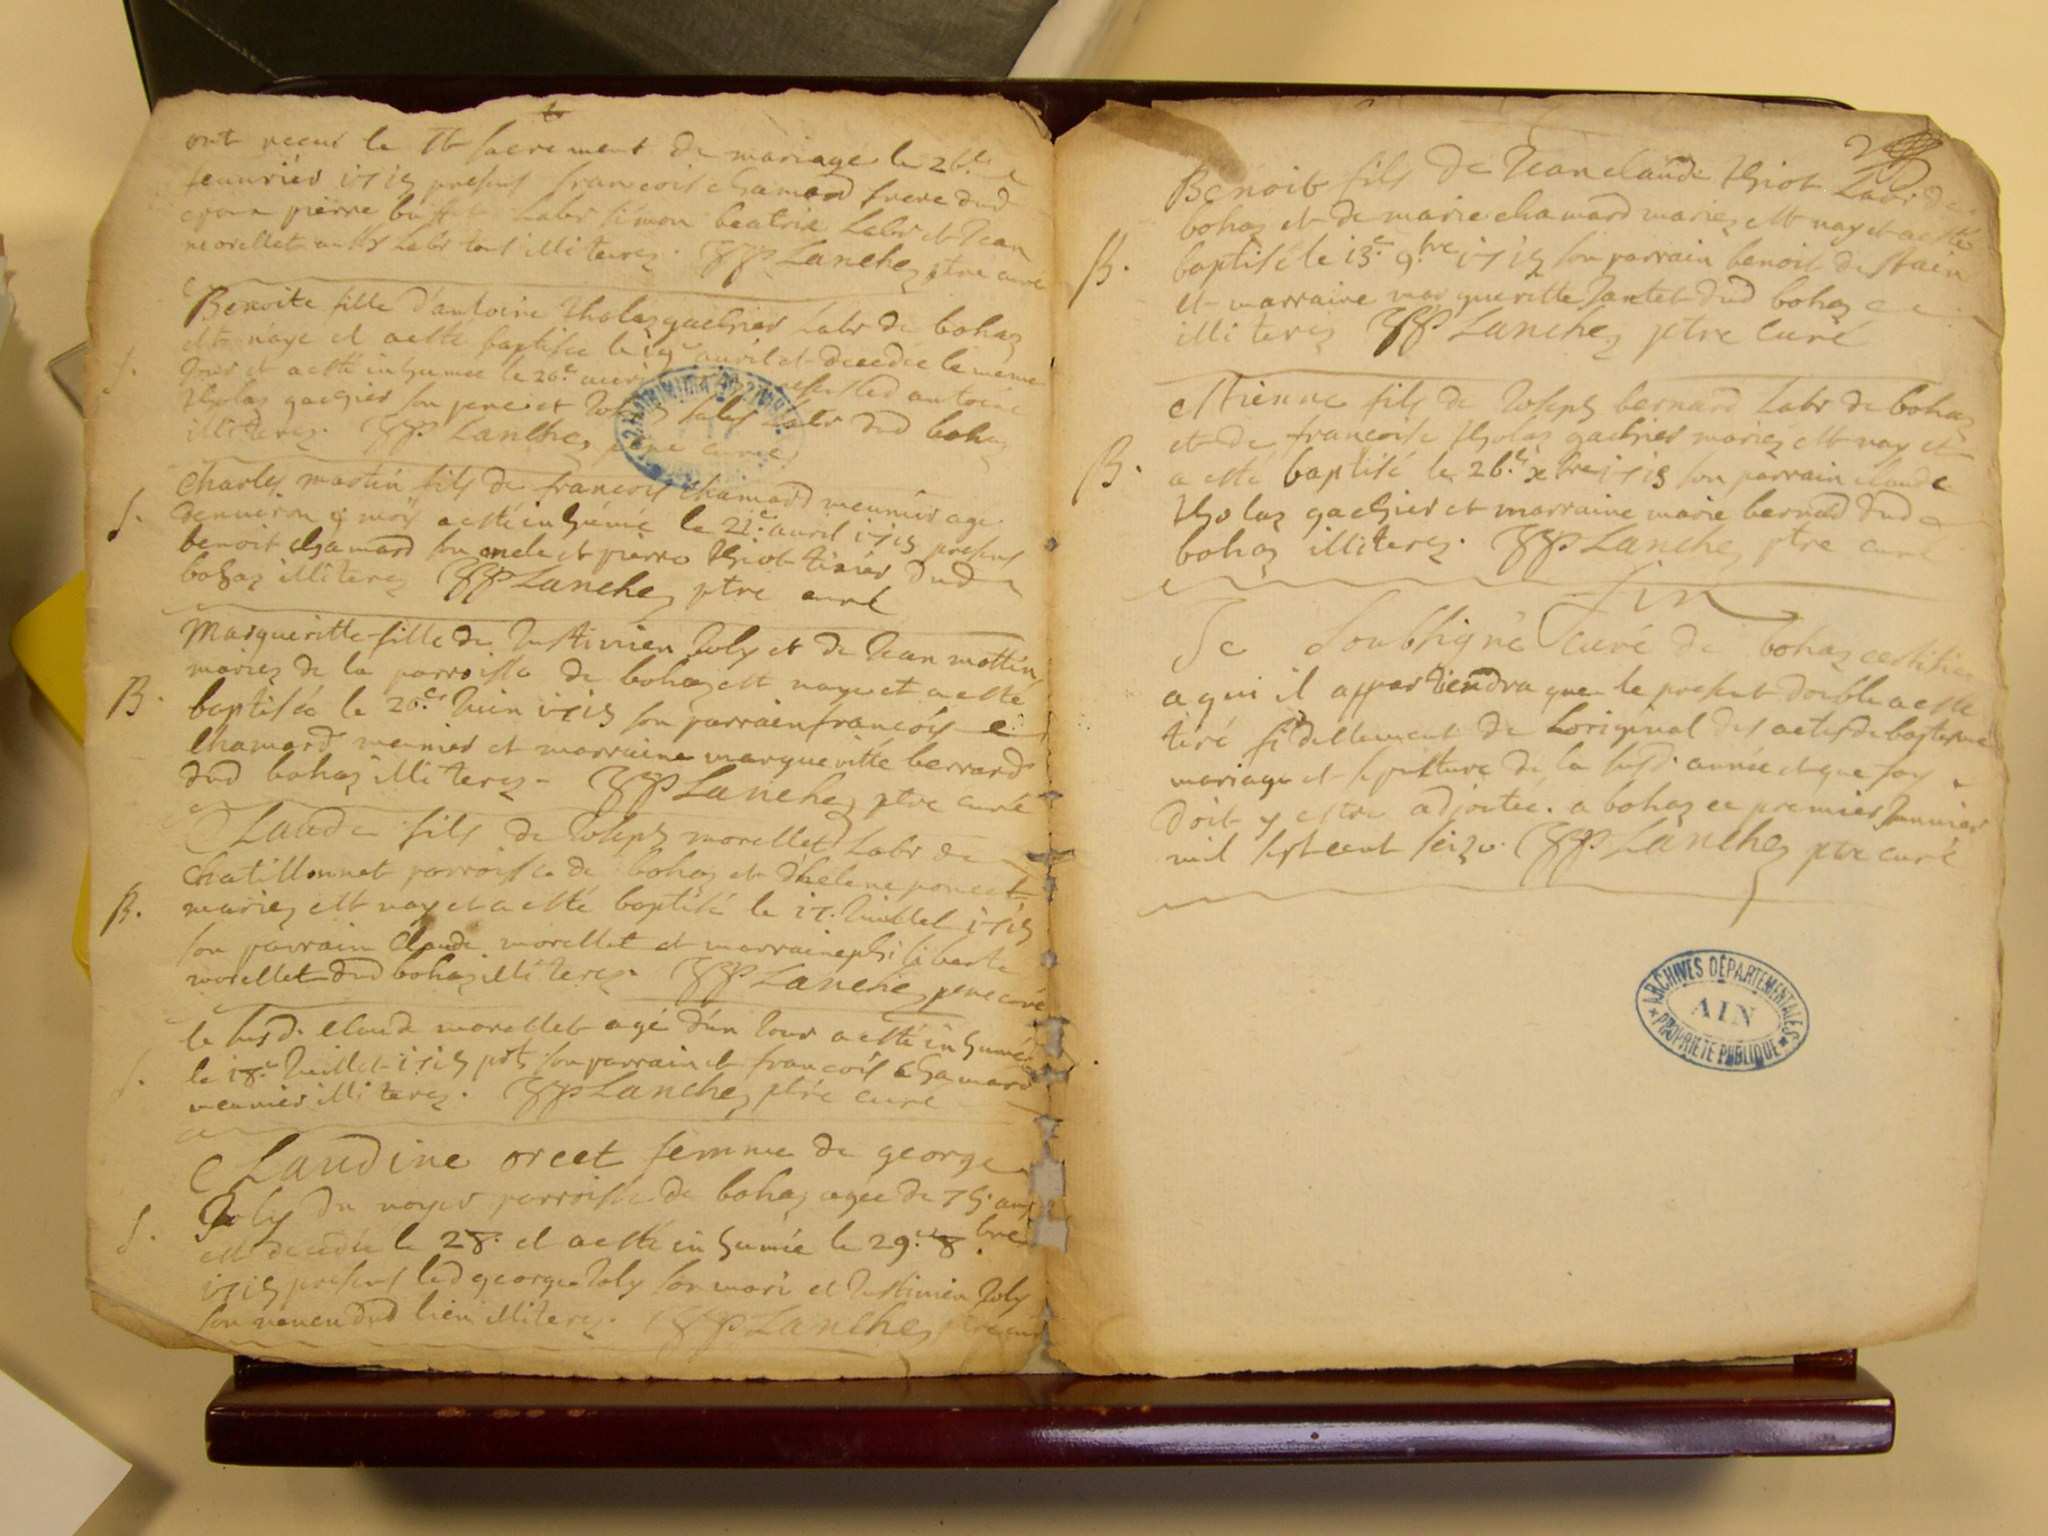 ont receus le St sacrement de mariage le 26e
feuurier 1715 presens francois chamard frere dud
epoux pierre buffet Labr simon beatrix Labr et Jean
morellet aussy Labr tous illiteres. JJP Lanchez ptre curé
Benoite fille d'antoine tholaz gachier Labr de bohaz
est näye et a esté baptisée le 19e auril et decedée le meme
Jour et a esté inhumée le 20e auril presens led antoine
tholaz gachier son pere et Labr dud bohaz
illiteres. JJP Lanchez ptre curé
S. Charles martin fils de francois chamard meunier age
denuiron 9 moÿ a esté inhumé le 21e auril 1715 presens
benoit chamard son oncle et pierre thiot tixier dud
bohaz illiteres JJP Lanchez ptre curé
Margueritte fille de Justinien Joly et de Jean mottin
mariez de la parroisse de bohaz est naye et a esté
B. baptisée le 20e Juin 1715 son parrain francois
chamard meunier et marraine margueritte bernard
dud bohaz illiteres. JJP Lanchez ptre curé
Claude fils de Joseph morellet Labr de
chatillonnet parroisse de bohaz et d'helene poncet
B. mariez est nay et a esté baptisé le 17. Juillet 1715
son parrain Claude morellet et marraine philiberte
morellet dud bohaz illiteres. JJP Lanchez ptre curé
le susd. Claude morellet agé d'un Jour a esté inhumé
S. le 18e Juillet 1715 pnts son parrain et francois chamard
meunier illiteres. JJP Lanchez ptre curé
Claudine orcet femme de george
Joly du noyer parroisse de bohaz agée de 75. ans
S. est decedée le 28. et a esté inhumée le 29e 8bre
1715 presens led george Joly son mari et Justinien Joly
son neueu dud lieu illiteres. JJP Lanchez ptre curé
Benoit fils de Jean claude thiot Labr. de
bohaz et de marie chamard mariez est nay et a esté
B. baptisé le 13e 9bre 1715 son parrain benoit de stain
et marraine margueritte Jantet dud bohaz
illiteres JJP Lanchez ptre curé
Estienne fils de Joseph bernard Labr de bohaz
et de francoise tholaz gachier mariez est nay et
B. a esté baptisé le 26e xbre 1715 son parrain claude
tholaz gachier et marraine marie bernard dud
bohaz illiteres. JJP Lanchez ptre curé
fin
Je soubsigné curé de bohaz certifie
a qui il appartiendra que le present double a esté
tiré fidellement de Loriginal des actes de baptesme
mariage et sepulture de la susd. année et que foy
doit y estre adjoutée. a bohaz ce premier Januier
mil sept cent seize. JJP Lanchez ptre curé
ARCHIVES DÉPARTEMENTALES
AIN
PROPRIÉTÉ PUBLIQUE